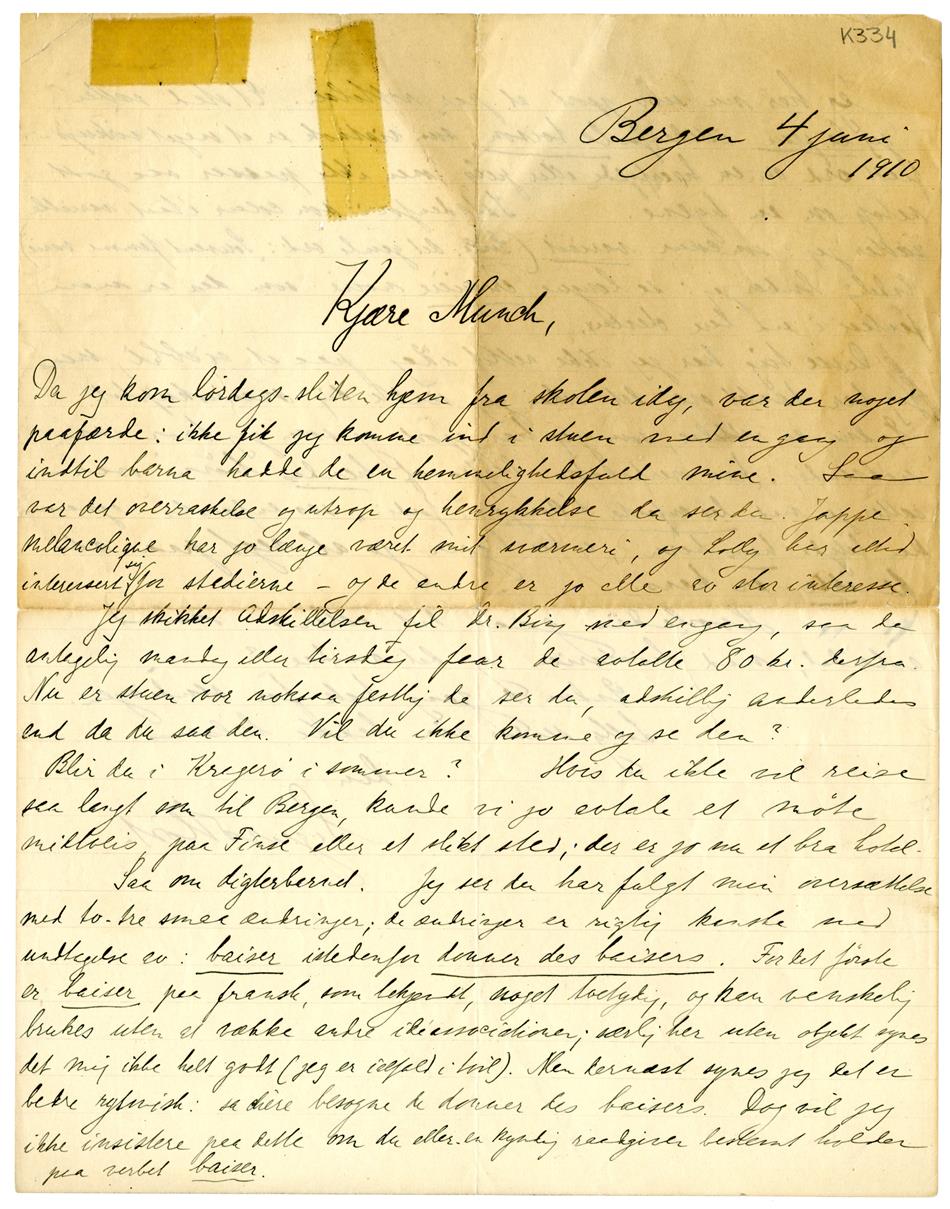 K334
Bergen 4 juni
1910
Kjære Munch,
Da jeg kom lördags-sliten hjem fra skolen idag, var der noget
paafærde: ikke fik jeg komme ind i stuen med en gang og
indtil barna hadde de en hemmelighedsfuld mine. Saa
var det overraskelse og utrop og henrykkelse da ser du. Jappe
melancolique har jo længe været mit sværmeri, og Lolly har altid
interessert sig for stedierne – og de andre er jo alle av stor interesse.
Jeg skikket Adskillelsen til Dr. Bing med engang, saa du
antagelig mandag eller tirsdag faar de avtalte 80 kr. derfra.
Nu er stuen vor voksaa festlig de ser du, adskillig anderledes
end da du saa den. Vil du ikke komme og se den?
Blir du i Kragerö i sommer? Hvis du ikke vil reise
saa langt som til Bergen, kunde vi jo avtale et möte
midtveis, paa Finse eller et slikt sted; der er jo nu et bra hotel.
Saa om digterbarnet. Jeg ser du har fulgt min oversættelse
med to-tre smaa ændringer; de ændringer er rigtig kanske med
undtagelse av: baiser istedenfor donner des baisers. For det förste
er baiser paa fransk, som bekjendt, noget tvetydig, og kan vanskelig
brukes uten at vække andre idéassociationer; særlig her uten objekt synes
det mig ikke helt godt (jeg er ialfald i tvil). Men dernæst synes jeg det er
bedre rytmisk: sa chère besogne de donner des baisers. Dog vil jeg
ikke insistere paa dette om du eller en kyndig raadgiver bestemt holder
paa verbet baiser.